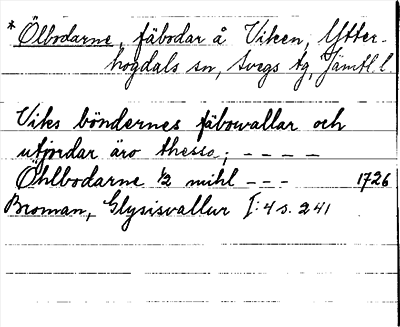 * Ölbodarne, fäbodar å Viken, Ytter-
hogdals sn, Svegs tg, Jämtl. l.
Viks böndernes fäbowallar och
utjordar äro thesse; - - - -
Öhlbodarne 1/2 mihl - - - 1726
Broman, Glysisvallur I:4 s. 241